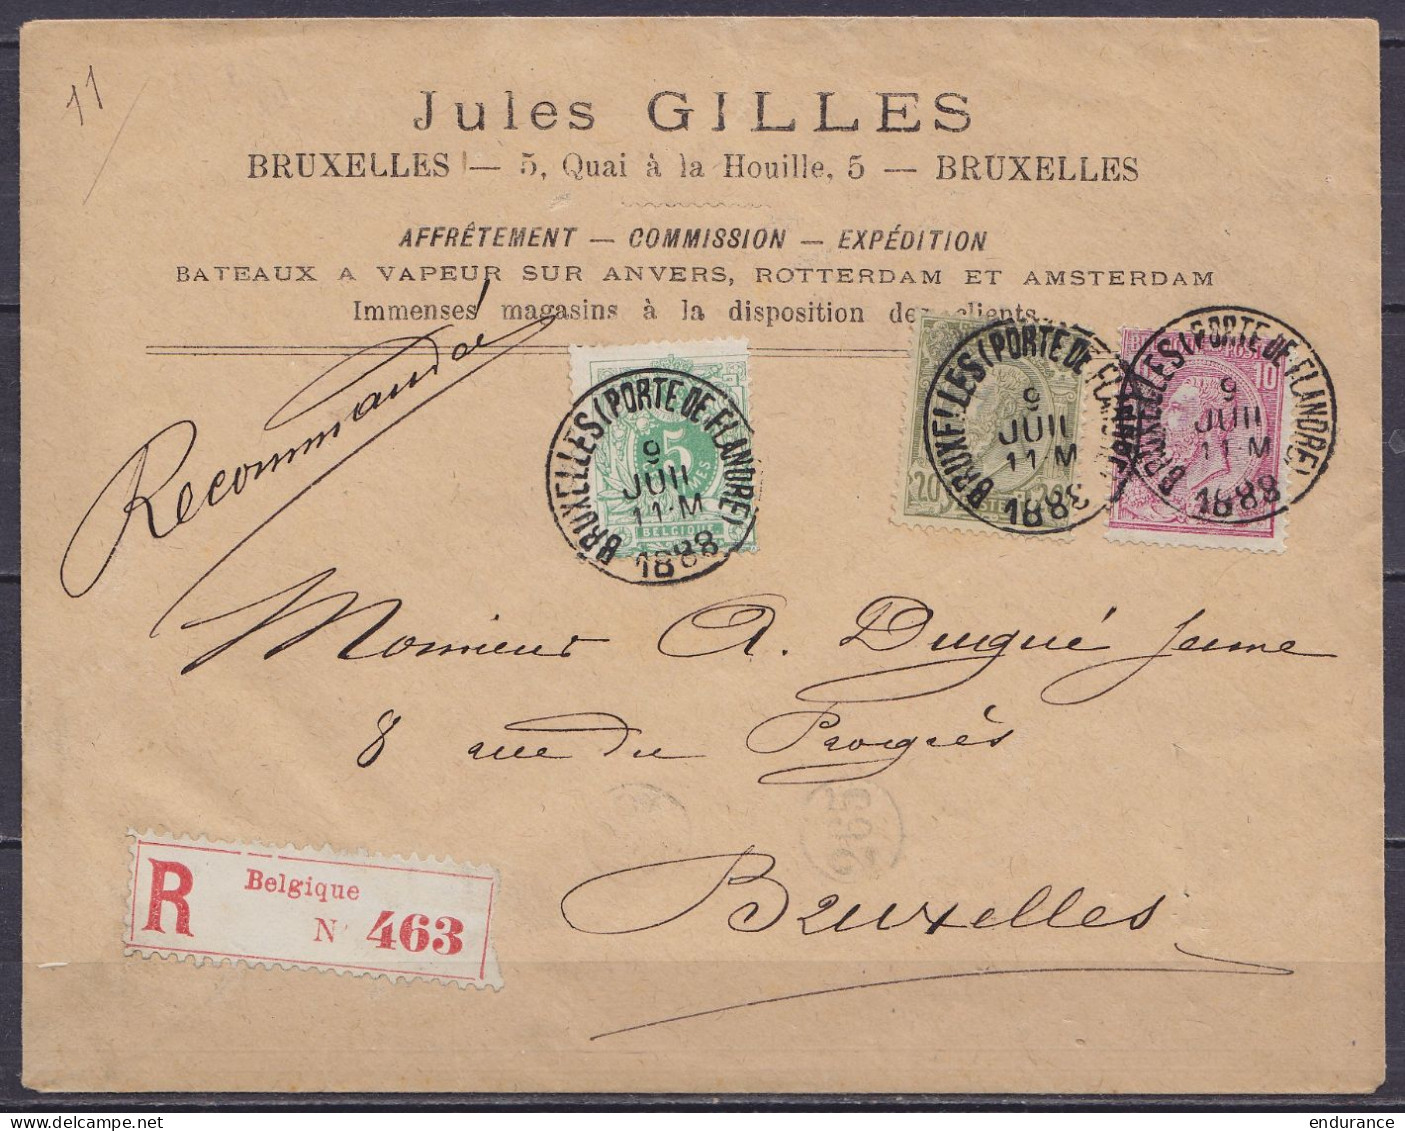 11
Jules GILLES
BRUXELLES — 5, Quai à la Houille, 5 — BRUXELLES
AFFRÊTEMENT — COMMISSION — EXPÉDITION
BATEAUX A VAPEUR SUR ANVERS, ROTTERDAM ET AMSTERDAM
Immenses magasins à la disposition des clients
Recommandé
5
BELGIQUE
BRUXELLES (PORTE DE FLANDRE)
9
JUIL
11-M
1888
20
BRUXELLES (PORTE DE FLANDRE)
9
JUIL
11-M
1888
10
BRUXELLES (PORTE DE FLANDRE)
9
JUIL
11-M
1888
Monsieur A. Dugué Jeune
8 rue du Progrès
Bruxelles
R Belgique
N° 463
endurance